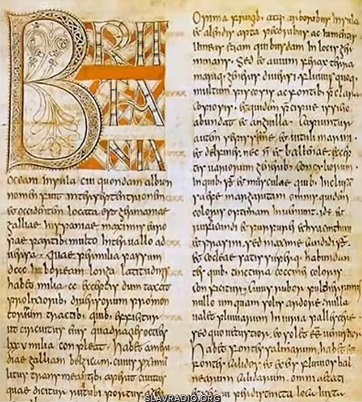 BRIT
TA
NIA
oceani insula cui quondam albion
nomen fuit inter septentrionem
et occidentem locata est germaniae
galliae hispaniae maximis euro
pae partibus multo interuallo ad
uersa. quae per milia passuum
dccc in boream longa latitudinis
habet milia cc exceptis dum taxat
prolixioribus diuersorum promon
toriorum tractibus quibus efficitur
ut circuitus eius quadragies octies
lxx v milia conpleat. habet a meri
die galliam belgicam cuius proximum
litus transmeantibus aperit ciuitas
quae dicitur rutubi portus
Opima frugibus atque arboribus insula
et alendis apta pecoribus ac iumentis
uineas etiam quibusdam in locis ger
minans. Sed et auium ferax terra
marique generis diuersi. fluuiis quoque
multum piscosis ac fontibus praeclara
copiosis. et quidem praecipue issicio
abundat et anguilla. Capiuntur
autem saepissime et uituli marini
et delphines nec non et ballenae. exceptis
uariorum generibus concyliorum
in quibus sunt et musculae quibus inclusam
saepe margaritam omnis quidem
coloris optimam inueniunt. id est
et rubicundi et purpurei et hyacinthini
et prasini sed maxime candidi. sunt
et cocleae satis superque habundan
tes quibus tinctura coccinei coloris
conficitur. cuius rubor pulcherrimus
nullo umquam solis ardore nulla
ualet pluuiarum iniuria pallescere
sed quo uetustior eo solet esse uenustior.
habet fontes salinarum habet et
fontes calidos et ex eis fluuios bal
nearum calidarum omni aetati
et sexui per distincta loca iuxta
SLAVRADIO.ORG